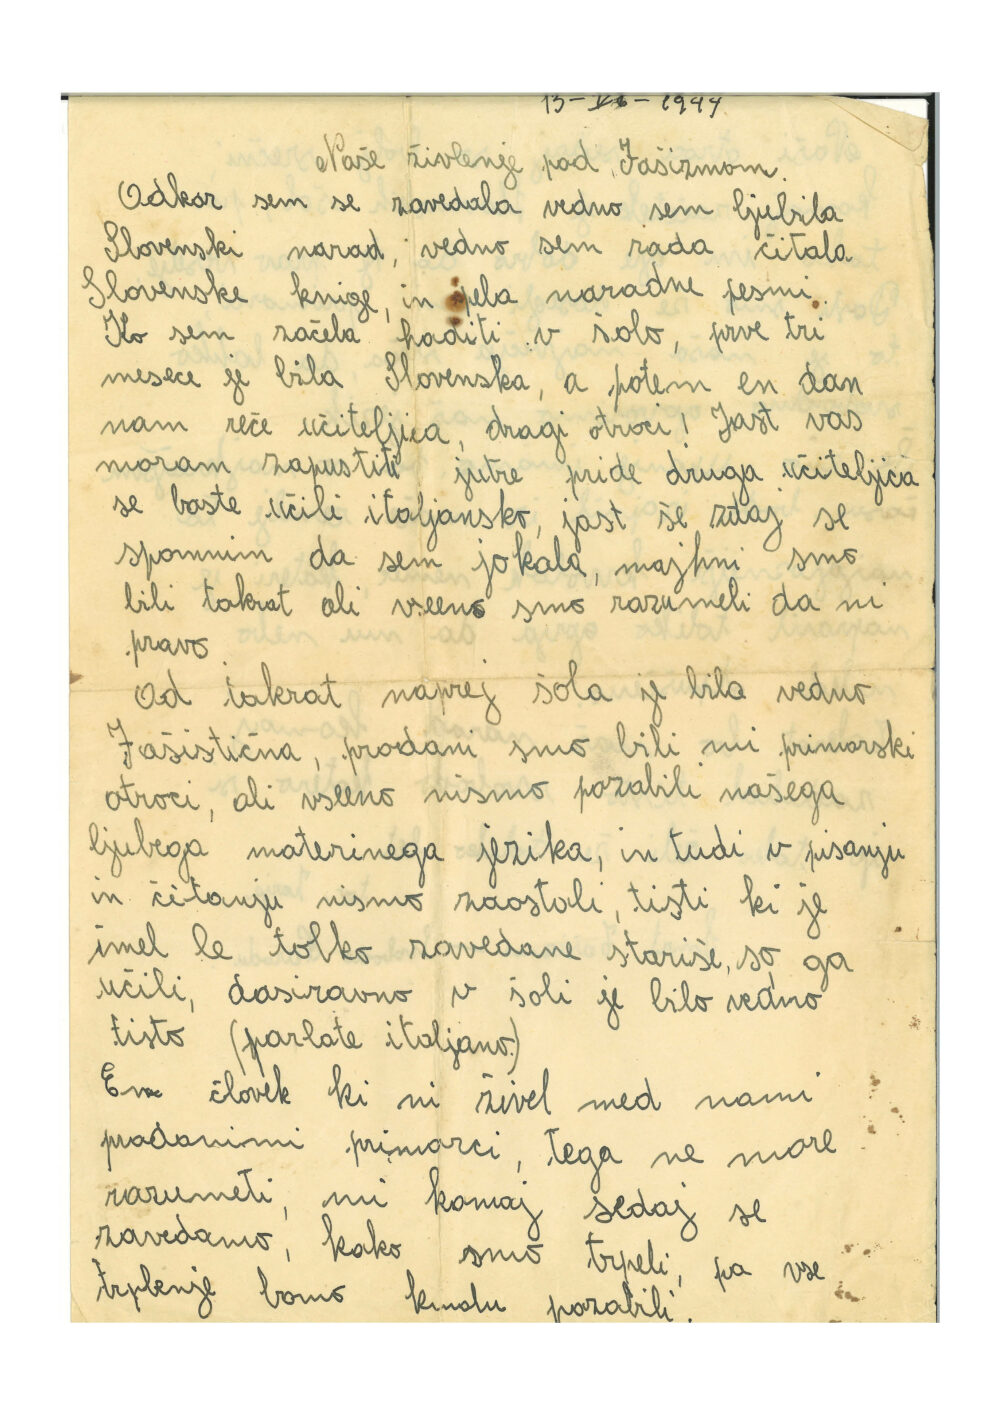 13-VI-1944
Naše živlenje pod Fašizmom.
Odkar sem se zavedala vedno sem ljubila
Slovenski narad, vedno sem rada čitala
Slovenske knige, in pela naradne pesmi.
Ko sem začela haditi v šolo, prve tri
mesece je bila Slovenska, a potem en dan
nam reče učiteljica, dragi otroci! Jast vas
moram zapustiti jutre pride druga učiteljica
se boste učili italjansko, jast še zdaj se
spomnim da sem jokala, majhni smo
bili takrat ali vseeno smo razumeli da ni
pravo.
Od takrat naprej šola je bila vedno
Fašistična, prodani smo bili mi primarski
otroci, ali vseeno nismo pozabili našega
ljubega materinega jezika, in tudi v pisanju
in čitanju nismo zaostali, tisti ki je
imel le tolko zavedane stariše, so ga
učili, dasiravno v šoli je bilo vedno
tisto (parlate italjano.)
En človek ki ni živel med nami
prodanimi primorci, tega ne more
razumeti, mi komaj sedaj se
zavedamo, kako smo trpeli, pa vse
trplenje bomo kmalu pozabili.